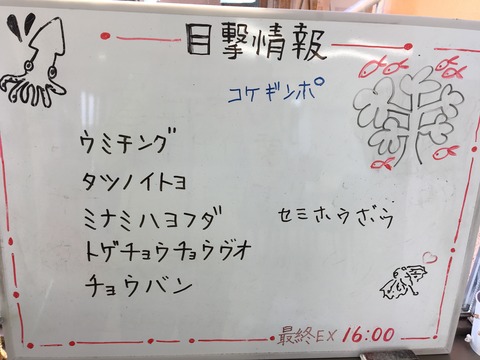 目撃情報
コケギンポ
ウミテング
タツノイトヨ
ミナミハコフグ セミホウボウ
トゲチョウチョウヴオ
チョウバン
最終EX 16:00